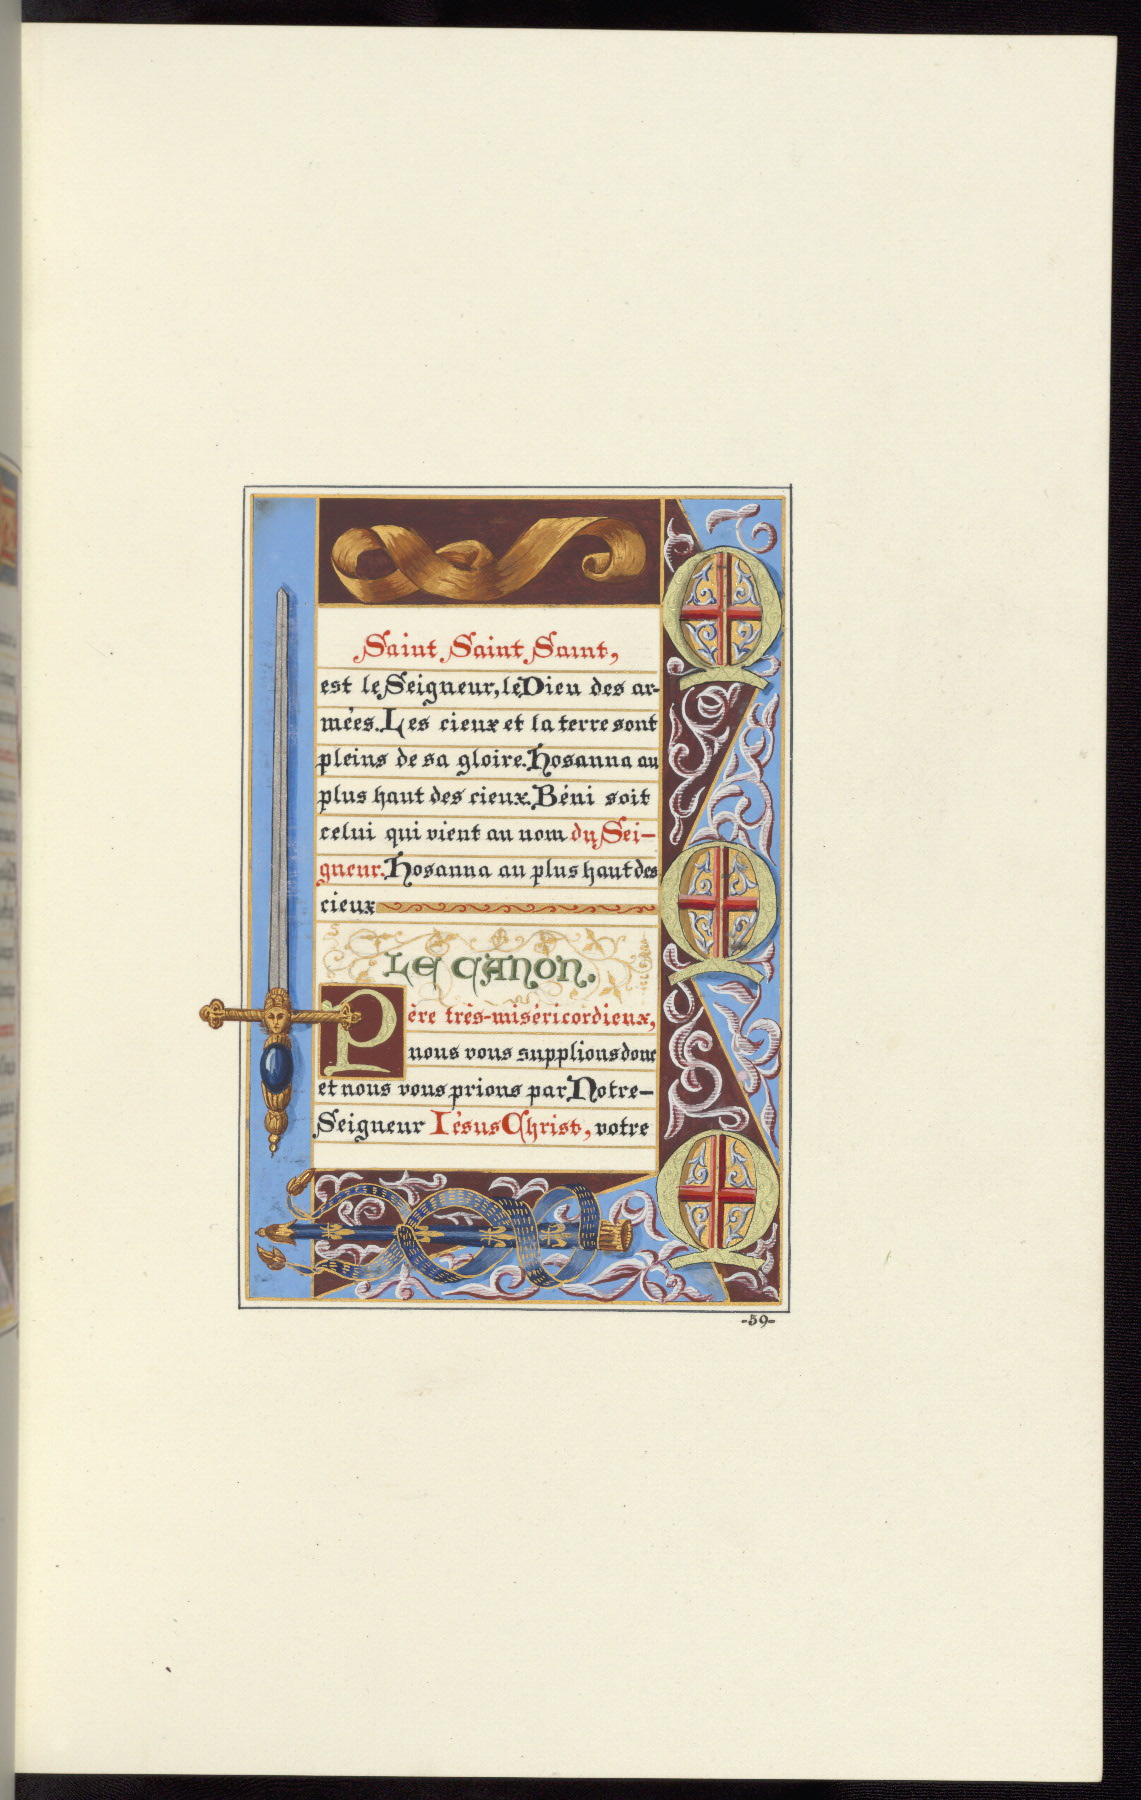 Saint Saint Saint,
est le Seigneur, le Dieu des ar-
mées. Les cieux et la terre sont
pleins de sa gloire. Hosanna au
plus haut des cieux. Béni soit
celui qui vient au nom du Sei-
gneur. Hosanna au plus haut des
cieux
LE CANON.
Père très-miséricordieux,
nous vous supplions donc
et nous vous prions par Notre-
Seigneur Jésus Christ, votre
-59-